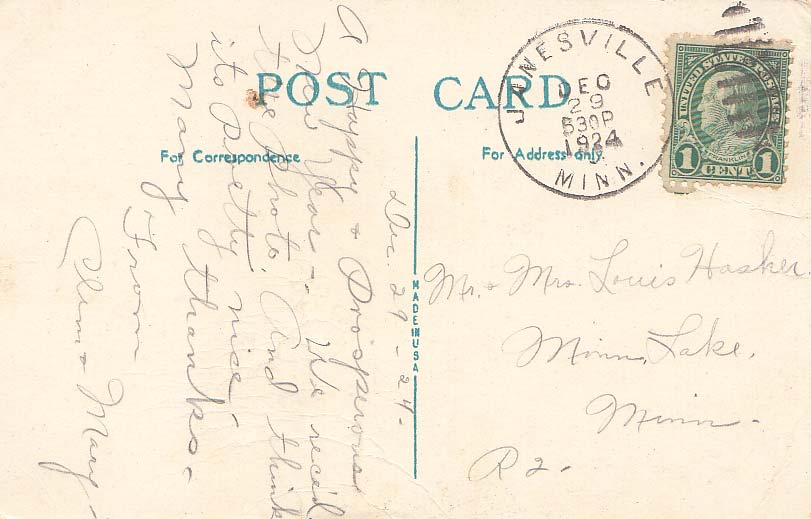 POST CARD
For Correspondence
For Address only.
MADE IN USA
JANESVILLE
DEC
29
530P
1924
MINN.
UNITED STATES POSTAGE
FRANKLIN
1 CENT 1
Dec. 29 - 24.
A Happy & Prosperous
New Year -. We rec'd
the Photo. And think
its Pretty nice.
Many thanks.
From
Clem & Mary -
Mr. & Mrs. Louis Hasker.
Minn. Lake.
Minn.
R 2.